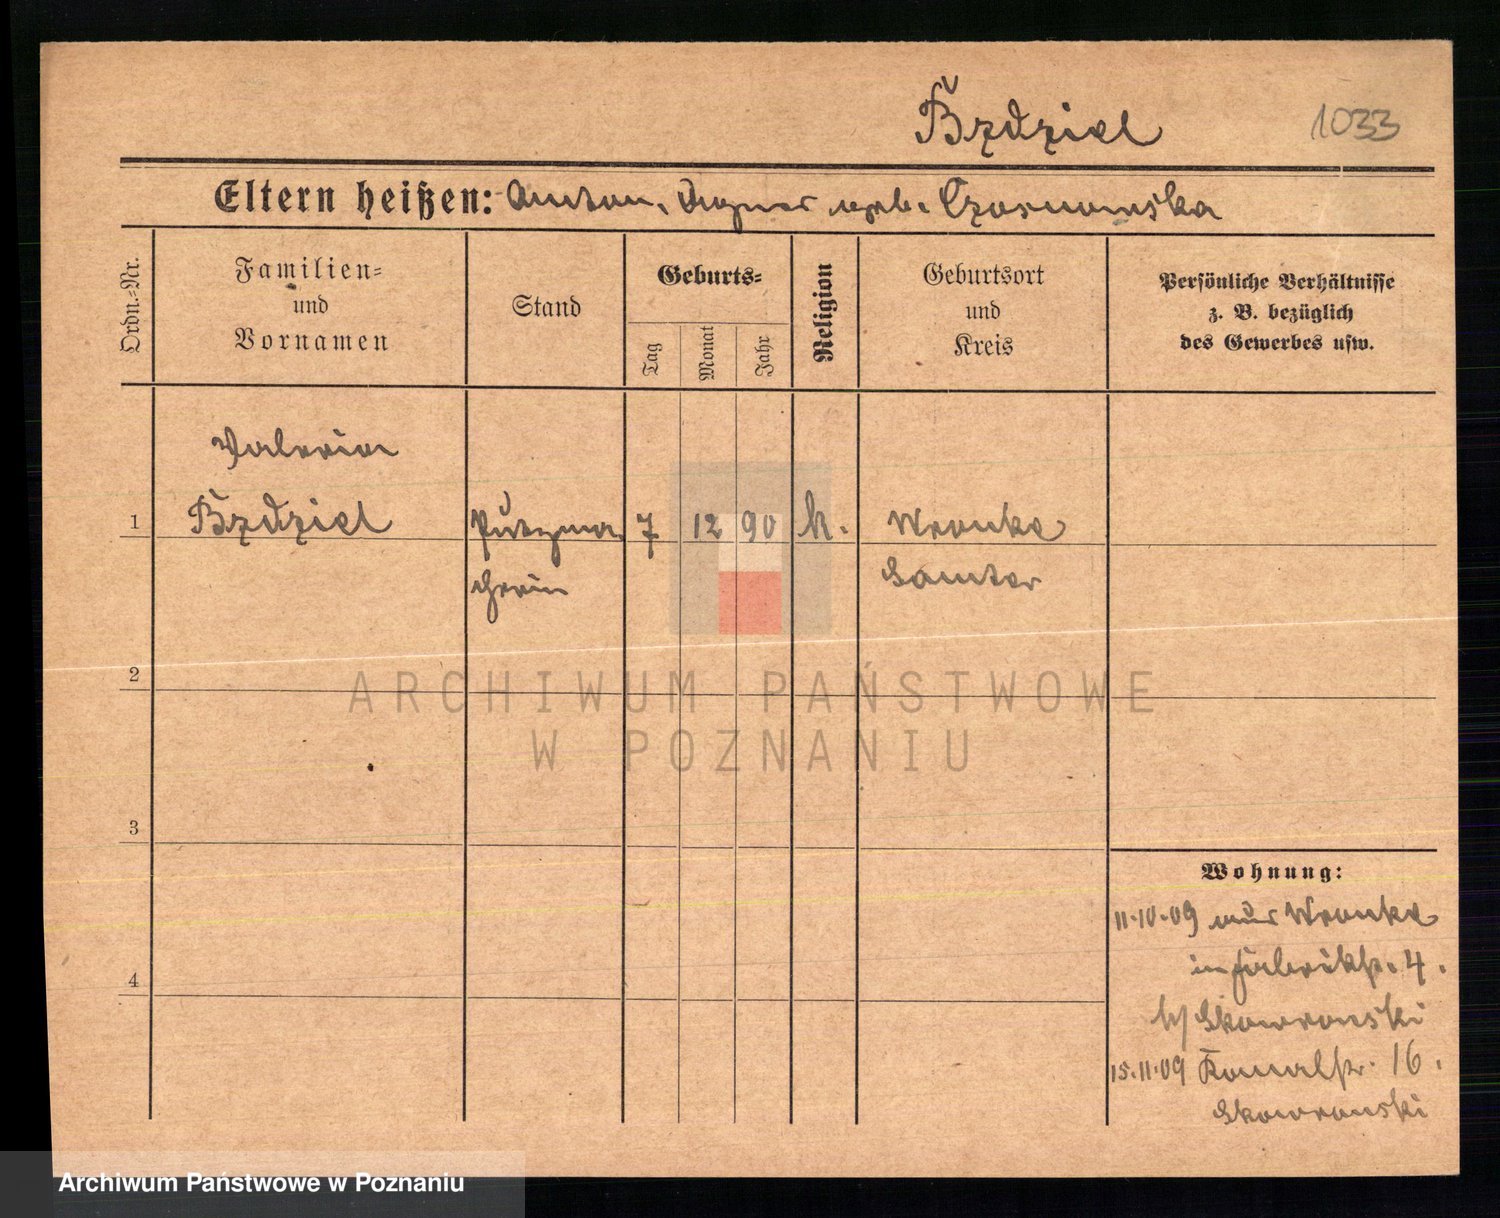 Bzdziel
1033
Eltern heißen: Anton, Agnes geb. Czosnowska
Ordn.-Nr.
Familien-
und
Vornamen
Stand
Geburts-
Tag
Monat
Jahr
Religion
Geburtsort
und
Kreis
Persönliche Verhältnisse
z. B. bezüglich
des Gewerbes usw.
Valeria
1 Bzdziel Putzma 7 12 90 k. Wronke
cherin Samter
2
ARCHIWUM PAŃSTWOWE
W POZNANIU
3
Wohnung:
11.10.09 aus Wronke
in Fabrikstr. 4.
b/ Skowronski
4
15.11.09 Kanalstr. 16.
Skowronski
Archiwum Państwowe w Poznaniu